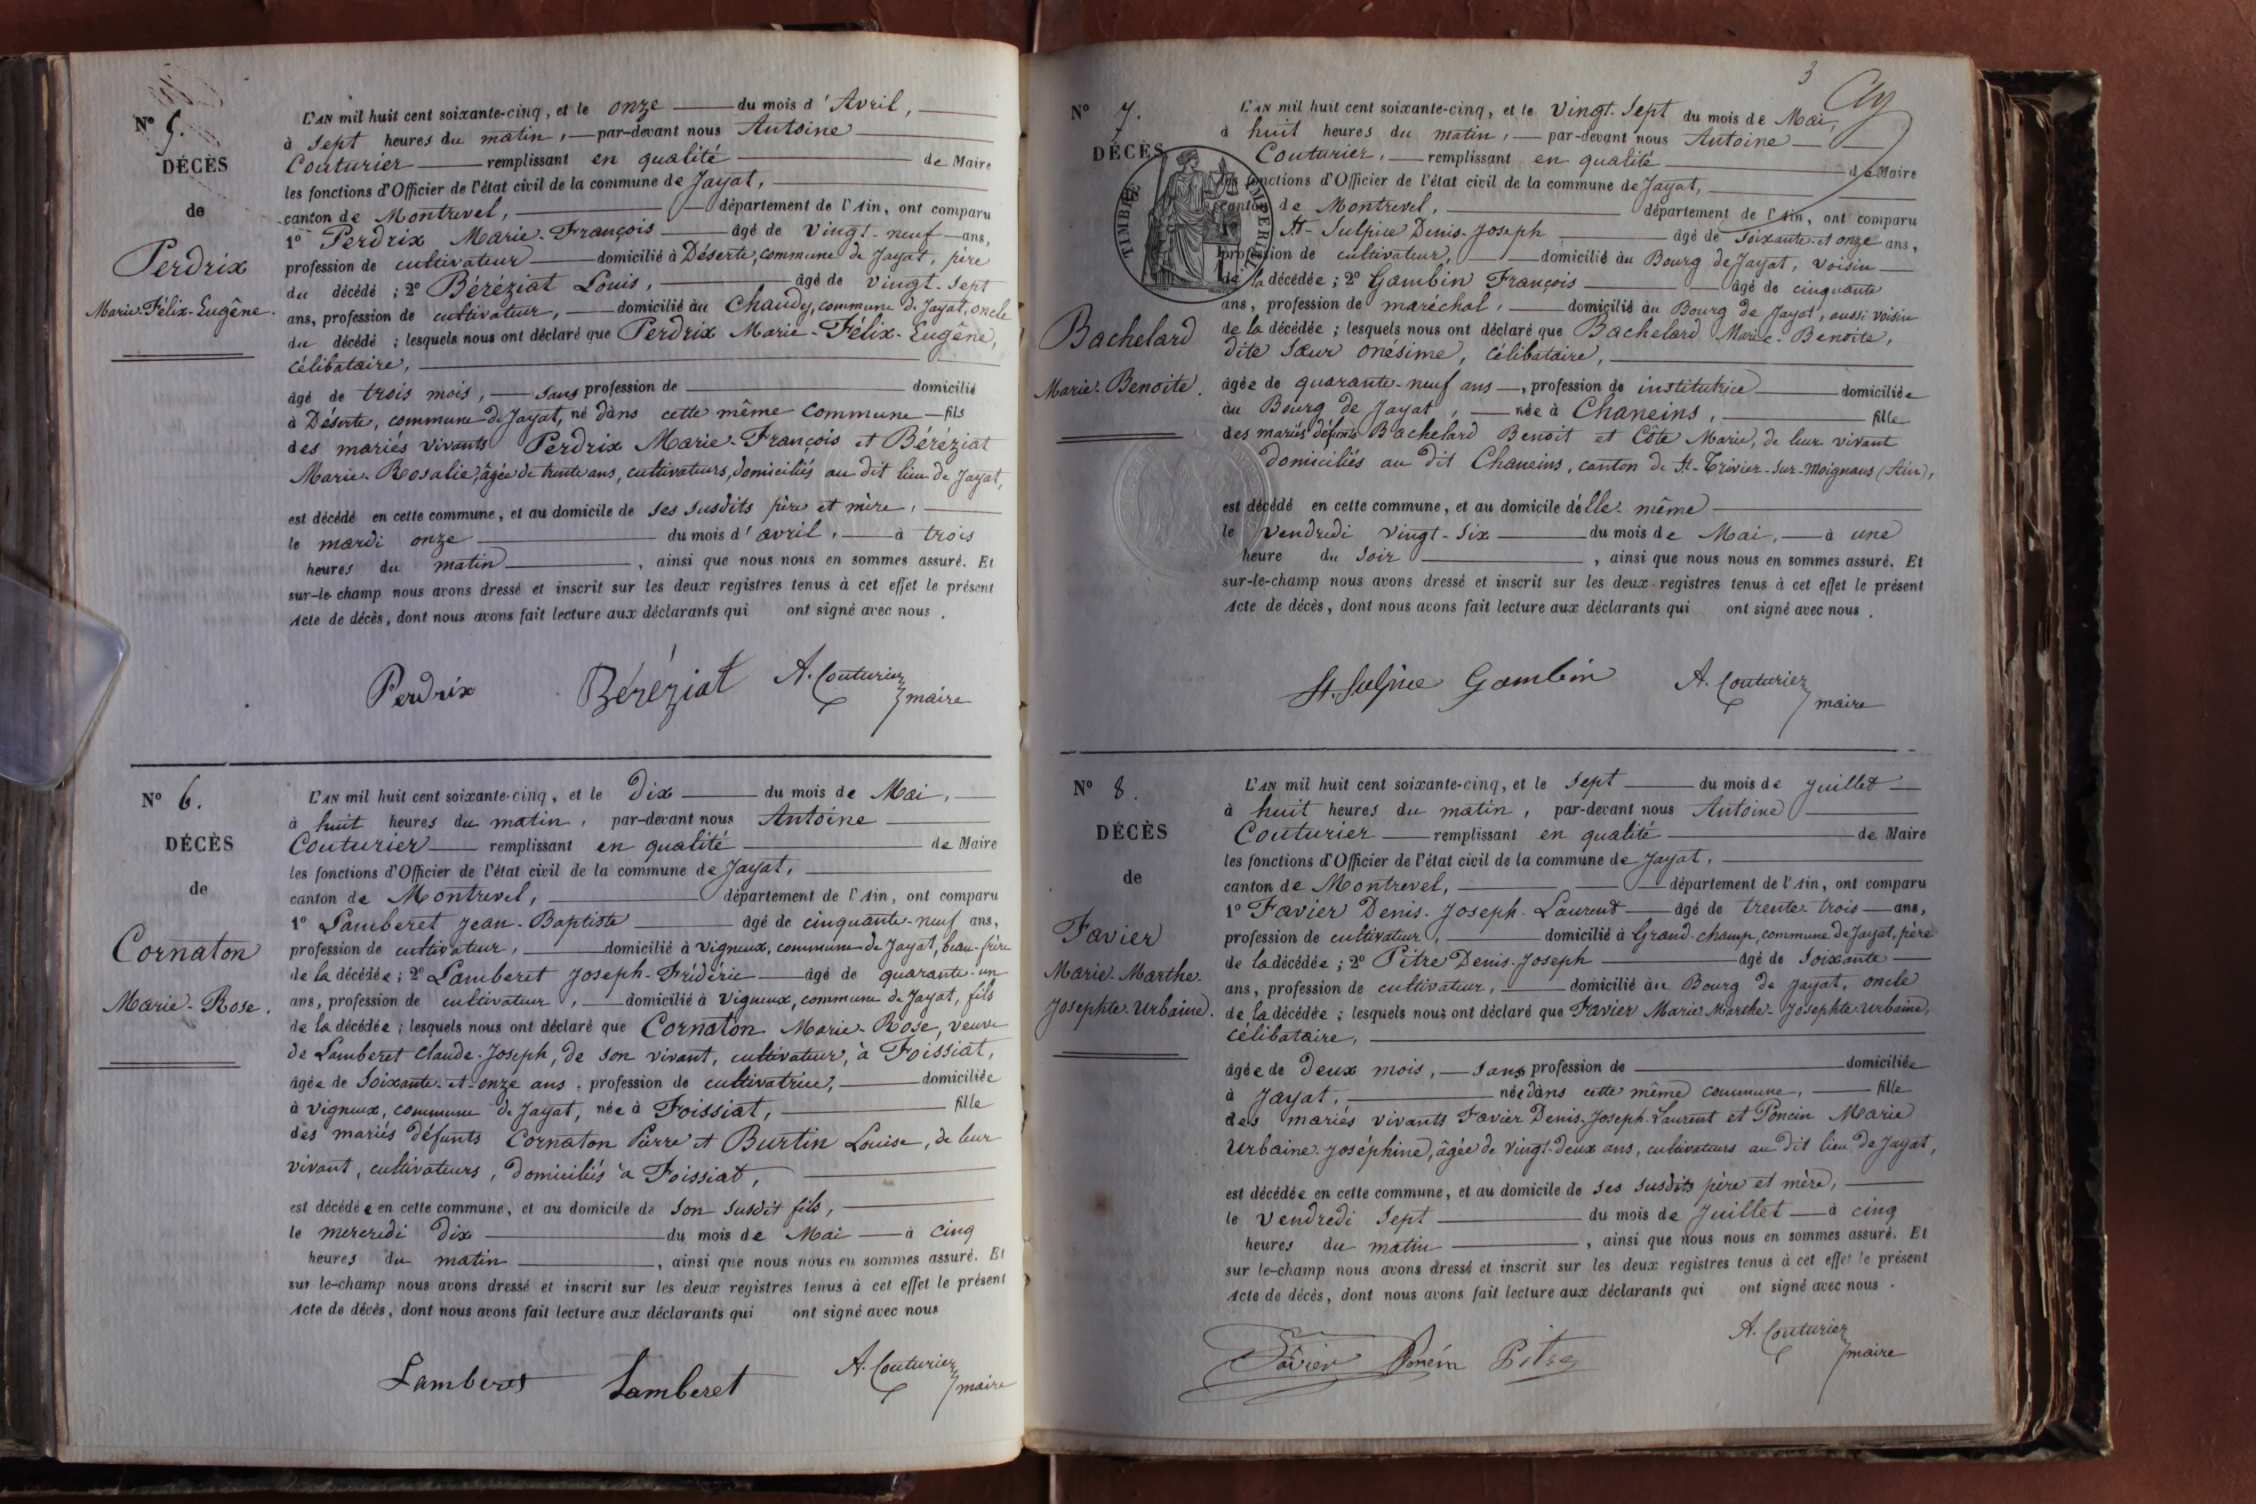 N° 5.
DÉCÈS
de
Perdrix
Marie-Félix-Eugêne.
L'AN mil huit cent soixante-cinq, et le onze du mois d'Avril,
à sept heures du matin, par-devant nous Antoine
Couturier remplissant en qualité de Maire
les fonctions d'Officier de l'état civil de la commune de Jayat,
canton de Montrevel, département de l'Ain, ont comparu
1° Perdrix Marie-François âgé de vingt-neuf ans,
profession de cultivateur domicilié à Déserte, commune de Jayat, père
du décédé ; 2° Béréziat Louis, âgé de vingt-sept
ans, profession de cultivateur, domicilié au Chaudy, commune de Jayat, oncle
du décédé ; lesquels nous ont déclaré que Perdrix Marie-Félix-Eugêne,
célibataire,
âgé de trois mois, sans profession de domicilié
à Déserte, commune de Jayat, né dans cette même commune fils
des mariés vivants Perdrix Marie-François et Béréziat
Marie-Rosalie, âgée de trente ans, cultivateurs, domiciliés au dit lieu de Jayat,
est décédé en cette commune, et au domicile de ses susdits père et mère,
le mardi onze du mois d'avril, à trois
heures du matin, ainsi que nous nous en sommes assuré. Et
sur-le-champ nous avons dressé et inscrit sur les deux registres tenus à cet effet le présent
Acte de décès, dont nous avons fait lecture aux déclarants qui ont signé avec nous.
Perdrix Béréziat A. Couturier
maire
N° 6.
DÉCÈS
de
Cornaton
Marie-Rose.
L'AN mil huit cent soixante-cinq, et le dix du mois de Mai,
à huit heures du matin, par-devant nous Antoine
Couturier remplissant en qualité de Maire
les fonctions d'Officier de l'état civil de la commune de Jayat,
canton de Montrevel, département de l'Ain, ont comparu
1° Lamberet Jean-Baptiste âgé de cinquante-neuf ans,
profession de cultivateur, domicilié à Vigneux, commune de Jayat, beau-frère
de la décédée ; 2° Lamberet Joseph-Fréderic âgé de quarante-un
ans, profession de cultivateur, domicilié à Vigneux, commune de Jayat, fils
de la décédée ; lesquels nous ont déclaré que Cornaton Marie-Rose, veuve
de Lamberet Claude-Joseph, de son vivant, cultivateur, à Foissiat,
âgée de soixante-et-onze ans, profession de cultivatrice, domiciliée
à Vigneux, commune de Jayat, née à Foissiat, fille
des mariés défunts Cornaton Pierre et Burtin Louise, de leur
vivant, cultivateurs, domiciliés à Foissiat,
est décédée en cette commune, et au domicile de son susdit fils,
le mercredi dix du mois de Mai à cinq
heures du matin, ainsi que nous nous en sommes assuré. Et
sur le-champ nous avons dressé et inscrit sur les deux registres tenus à cet effet le présent
Acte de décès, dont nous avons fait lecture aux déclarants qui ont signé avec nous
Lamberet Lamberet A. Couturier
maire
3
N° 7.
DÉCÈS
TIMBRE IMPERIAL
Bachelard
Marie-Benoite.
L'AN mil huit cent soixante-cinq, et le vingt-sept du mois de Mai,
à huit heures du matin, par-devant nous Antoine
Couturier, remplissant en qualité de Maire
les fonctions d'Officier de l'état civil de la commune de Jayat,
canton de Montrevel, département de l'Ain, ont comparu
St-Sulpice Denis-Joseph âgé de soixante-et onze ans,
profession de cultivateur, domicilié au Bourg de Jayat, voisin
de la décédée ; 2° Gambin François âgé de cinquante
ans, profession de maréchal, domicilié au Bourg de Jayat, aussi voisin
de la décédée ; lesquels nous ont déclaré que Bachelard Marie-Benoite,
dite sœur onésime, célibataire,
âgée de quarante-neuf ans, profession de institutrice domiciliée
au Bourg de Jayat, née à Chaneins, fille
des mariés défunts Bachelard Benoit et Côte Marie, de leur vivant
domiciliés au dit Chaneins, canton de St-Trivier-sur-Moignans (Ain),
est décédé en cette commune, et au domicile d'elle-même
le vendredi vingt-six du mois de Mai, à une
heure du soir, ainsi que nous nous en sommes assuré. Et
sur-le-champ nous avons dressé et inscrit sur les deux registres tenus à cet effet le présent
Acte de décès, dont nous avons fait lecture aux déclarants qui ont signé avec nous.
St. Sulpice Gambin A. Couturier
maire
N° 8.
DÉCÈS
de
Favier
Marie-Marthe-
Josephte-Urbaine.
L'AN mil huit cent soixante-cinq, et le sept du mois de Juillet
à huit heures du matin, par-devant nous Antoine
Couturier remplissant en qualité de Maire
les fonctions d'Officier de l'état civil de la commune de Jayat,
canton de Montrevel, département de l'Ain, ont comparu
1° Favier Denis-Joseph-Laurent âgé de trente-trois ans,
profession de cultivateur, domicilié à Grand-champ, commune de Jayat, père
de la décédée ; 2° Pitre Denis-Joseph âgé de soixante
ans, profession de cultivateur, domicilié au Bourg de Jayat, oncle
de la décédée ; lesquels nous ont déclaré que Favier Marie-Marthe-Josephte-Urbaine,
célibataire,
âgée de deux mois, sans profession de domiciliée
à Jayat, née dans cette même commune, fille
des mariés vivants Favier Denis-Joseph-Laurent et Poncin Marie
Urbaine-Joséphine, âgée de vingt-deux ans, cultivateurs au dit lieu de Jayat,
est décédée en cette commune, et au domicile de ses susdits père et mère,
le vendredi sept du mois de Juillet à cinq
heures du matin, ainsi que nous nous en sommes assuré. Et
sur le-champ nous avons dressé et inscrit sur les deux registres tenus à cet effet le présent
Acte de décès, dont nous avons fait lecture aux déclarants qui ont signé avec nous.
Favier Poncin Pitre A. Couturier
maire